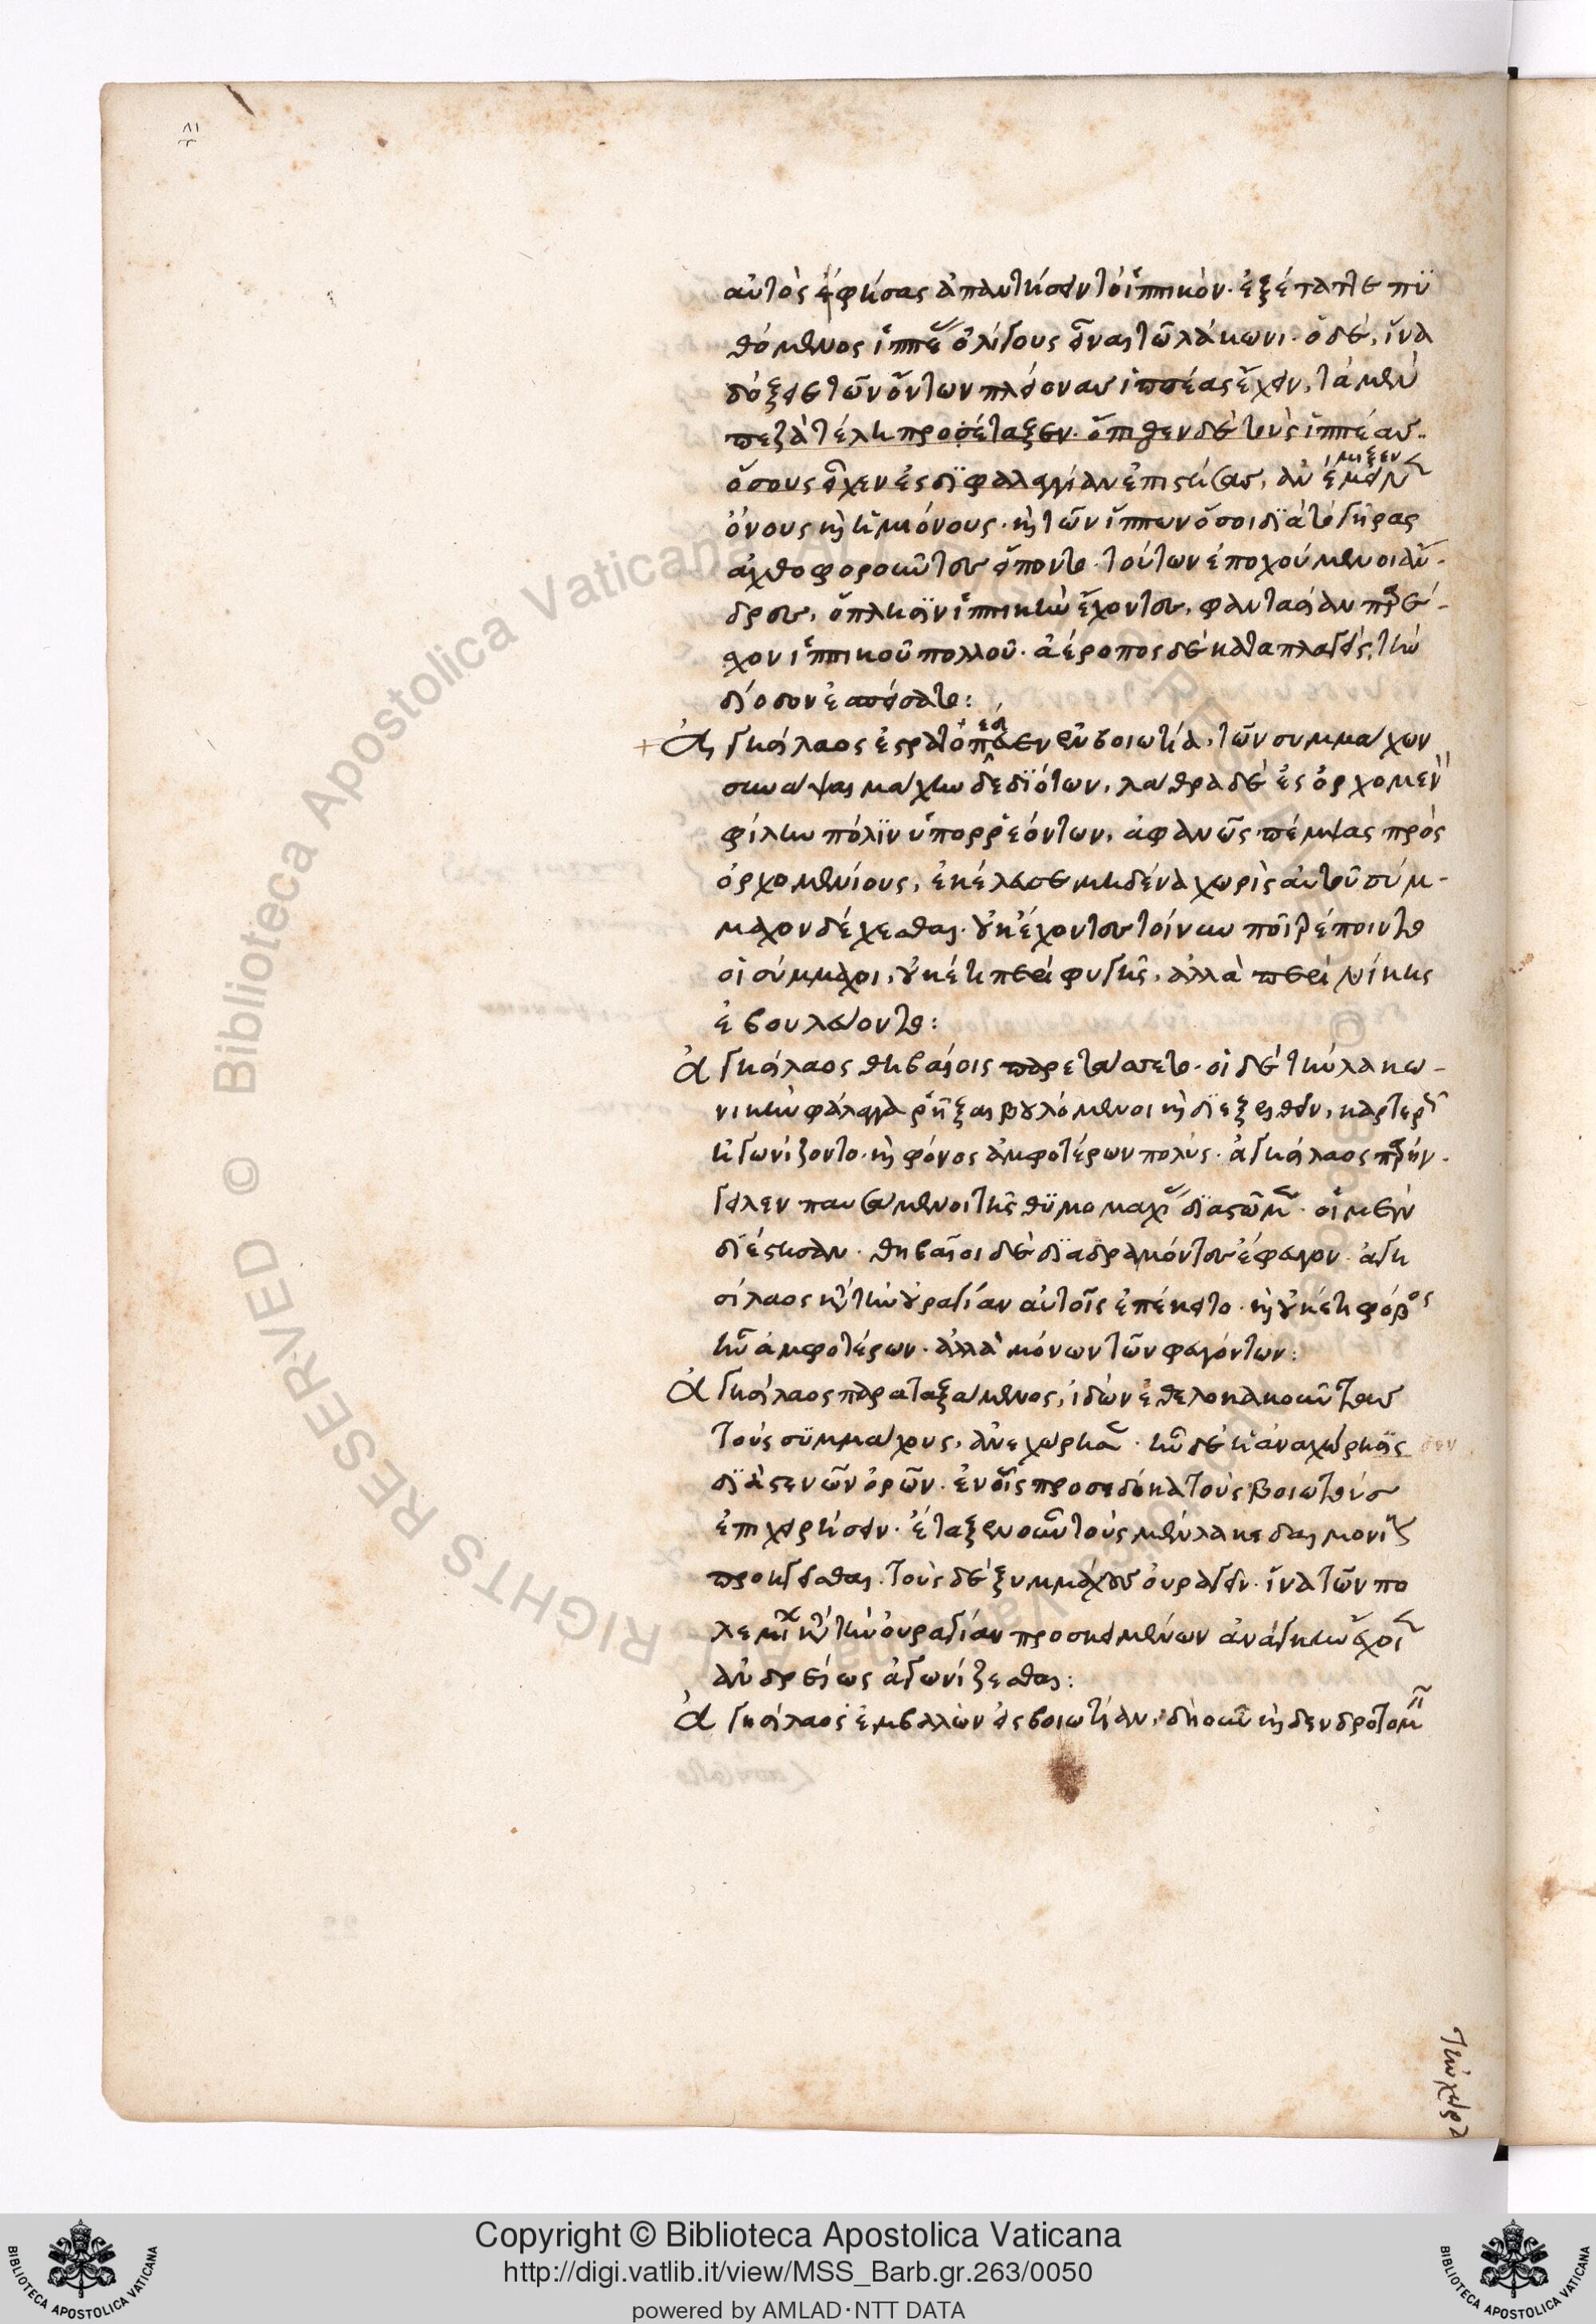 αὐτὸς ἐφήσας ἀπαντήσειν τὸ ἱππικὸν. ἐξέταττε πυ
θόμενος ἱππέας ὀλίγους εἶναι τῶ λάκωνι. ὁ δὲ, ἵνα
δόξειε τῶν ὄντων πλείονας ἱππέας ἔχειν, τὰ μὲν
πεζὰ τέλη προσέταξεν. ὄπιθεν δὲ τοὺς ἱππέας.
ὅσους εἶχεν ἐς διφαλαγγίαν ἐπιστήσας, ἀνέμειξεν
ὄνους καὶ ἡμιόνους. καὶ τῶν ἵππων ὅσοι διὰ τὸ γῆρας
ἀχθοφοροῦντες εἵποντο. τούτων ἐποχούμενοι ἄν-
δρες, ὅπλησιν ἱππικὴν ἔχοντες, φαντασίαν παρεῖ-
χον ἱππικοῦ πολλοῦ. ἀέροπος δὲ καταπλαγεὶς, τὴν
δίοδον ἐσπείσατο:
Ἀγησίλαος ἐστρατοπέδευσεν ἐν βοιωτία, τῶν συμμάχων
συνάψαι μάχην δεδιότων, λάθρα δὲ ἐς ὀρχομενὸν
φίλην πόλιν ὑπορρεόντων, ἀφανῶς πέμψας πρὸς
ὀρχομενίους, ἐκέλευσε μηδένα χωρὶς αὐτοῦ σύμ-
μαχον δέχεσθαι. οὐκ ἔχοντες τοίνυν ποῖ τρέποιντο
οἱ σύμμαχοι, οὐκέτι περὶ φυγῆς, ἀλλὰ περὶ νίκης
ἐβουλεύοντο:
Ἀγησίλαος θηβαίοις παρετάσσετο. οἱ δὲ τὴν λακω-
νικὴν φάλαγγα ρῆξαι βουλόμενοι καὶ διεξελθεῖν, καρτερῶς
ἠγωνίζοντο. καὶ φόνος ἀμφοτέρων πολύς. ἀγησίλαος παρήγ-
γειλεν παυσάμενοι τῆς θυμομαχίας διαστῶμεν. οἱ μὲν
διέστησαν. θηβαῖοι δὲ διαδραμόντες ἔφευγον. ἀγη
σίλαος κατὰ τὴν οὐραγίαν αὐτοῖς ἐπέκειτο. καὶ οὐκέτι φόβος
ἦν ἀμφοτέρων. ἀλλὰ μόνων τῶν φευγόντων:
Ἀγησίλαος παραταξάμενος, ἰδὼν ἐθελοκακοῦντας
τοὺς συμμάχους, ἀνεχώρησεν. ἦν δὲ ἡ ἀναχώρησις
διὰ στενῶν ὀρῶν. ἐν οἷς προσεδόκα τοὺς βοιωτοὺς
ἐπιχειρήσειν. ἔταξεν οὖν τοὺς μὲν λακεδαιμονίους
προηγεῖσθαι. τοὺς δὲ ξυμμάχους οὐραγεῖν. ἵνα τῶν πο
λεμίων κατὰ τὴν οὐραγίαν προσκειμένων ἀνάγκην ἔχοιεν
ἀνδρείως ἀγωνίζεσθαι:
Ἀγησίλαος ἐμβαλὼν εἰς βοιωτίαν, δηοῦν καὶ δενδροτομεῖν
τὴν χώρα
Copyright © Biblioteca Apostolica Vaticana
http://digi.vatlib.it/view/MSS_Barb.gr.263/0050
powered by AMLAD·NTT DATA